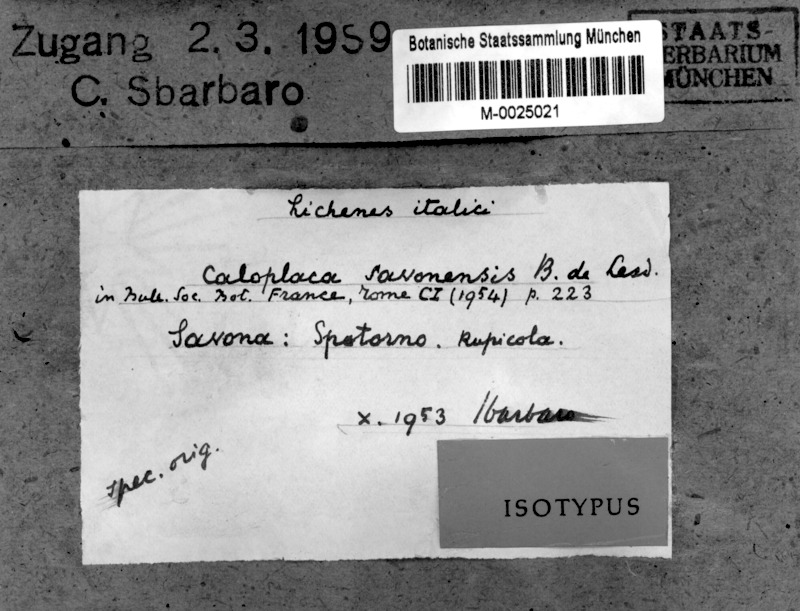 Zugang 2. 3. 1959
C. Sbarbaro
Botanische Staatssammlung München
M-0025021
STAATS-
HERBARIUM
MÜNCHEN
Lichenes italici
Caloplaca savonensis B. de Lesd.
in Bull. Soc. Bot. France, Tome CI (1954) p. 223
Savona: Spotorno. Rupicola.
X. 1953 Sbarbaro
spec. orig.
ISOTYPUS